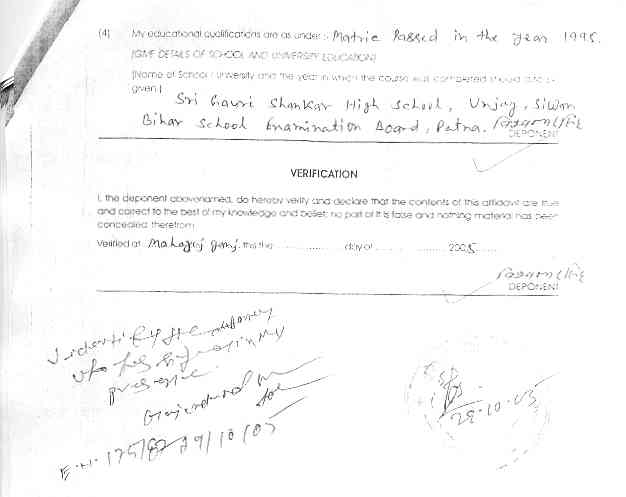 (4) My educational qualifications are as under :- Matric Passed in the year 1995.
(GIVE DETAILS OF SCHOOL AND UNIVERSITY EDUCATION)
(Name of School / University and the year in which the course was completed should also be
given.)
Sri Gauri Shankar High School, Unjay, Siwan
Bihar School Enamination Board, Patna.
DEPONENT
VERIFICATION
I, the deponent abovenamed, do hereby verify and declare that the contents of this affidavit are true
and correct to the best of my knowledge and belief; no part of it is false and nothing material has been
concealed therefrom.
Verified at Maharaj ganj. this the ............ day of .................. 2005.
DEPONENT
I identify the
who has in my
presence.
E.N. 175/82 29/10/05
29-10-05